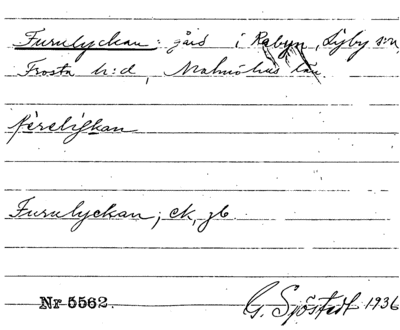 Furulyckan: gård i Rabyn, Lyby s:n,
Frosta h:d, Malmöhus län
Furulyckan; ek, jb
Nr 5562.
G. Sjöstedt 1936